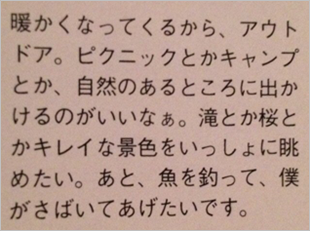 暖かくなってくるから、アウト
ドア。ピクニックとかキャンプ
とか、自然のあるところに出か
けるのがいいなぁ。滝とか桜と
かキレイな景色をいっしょに眺
めたい。あと、魚を釣って、僕
がさばいてあげたいです。